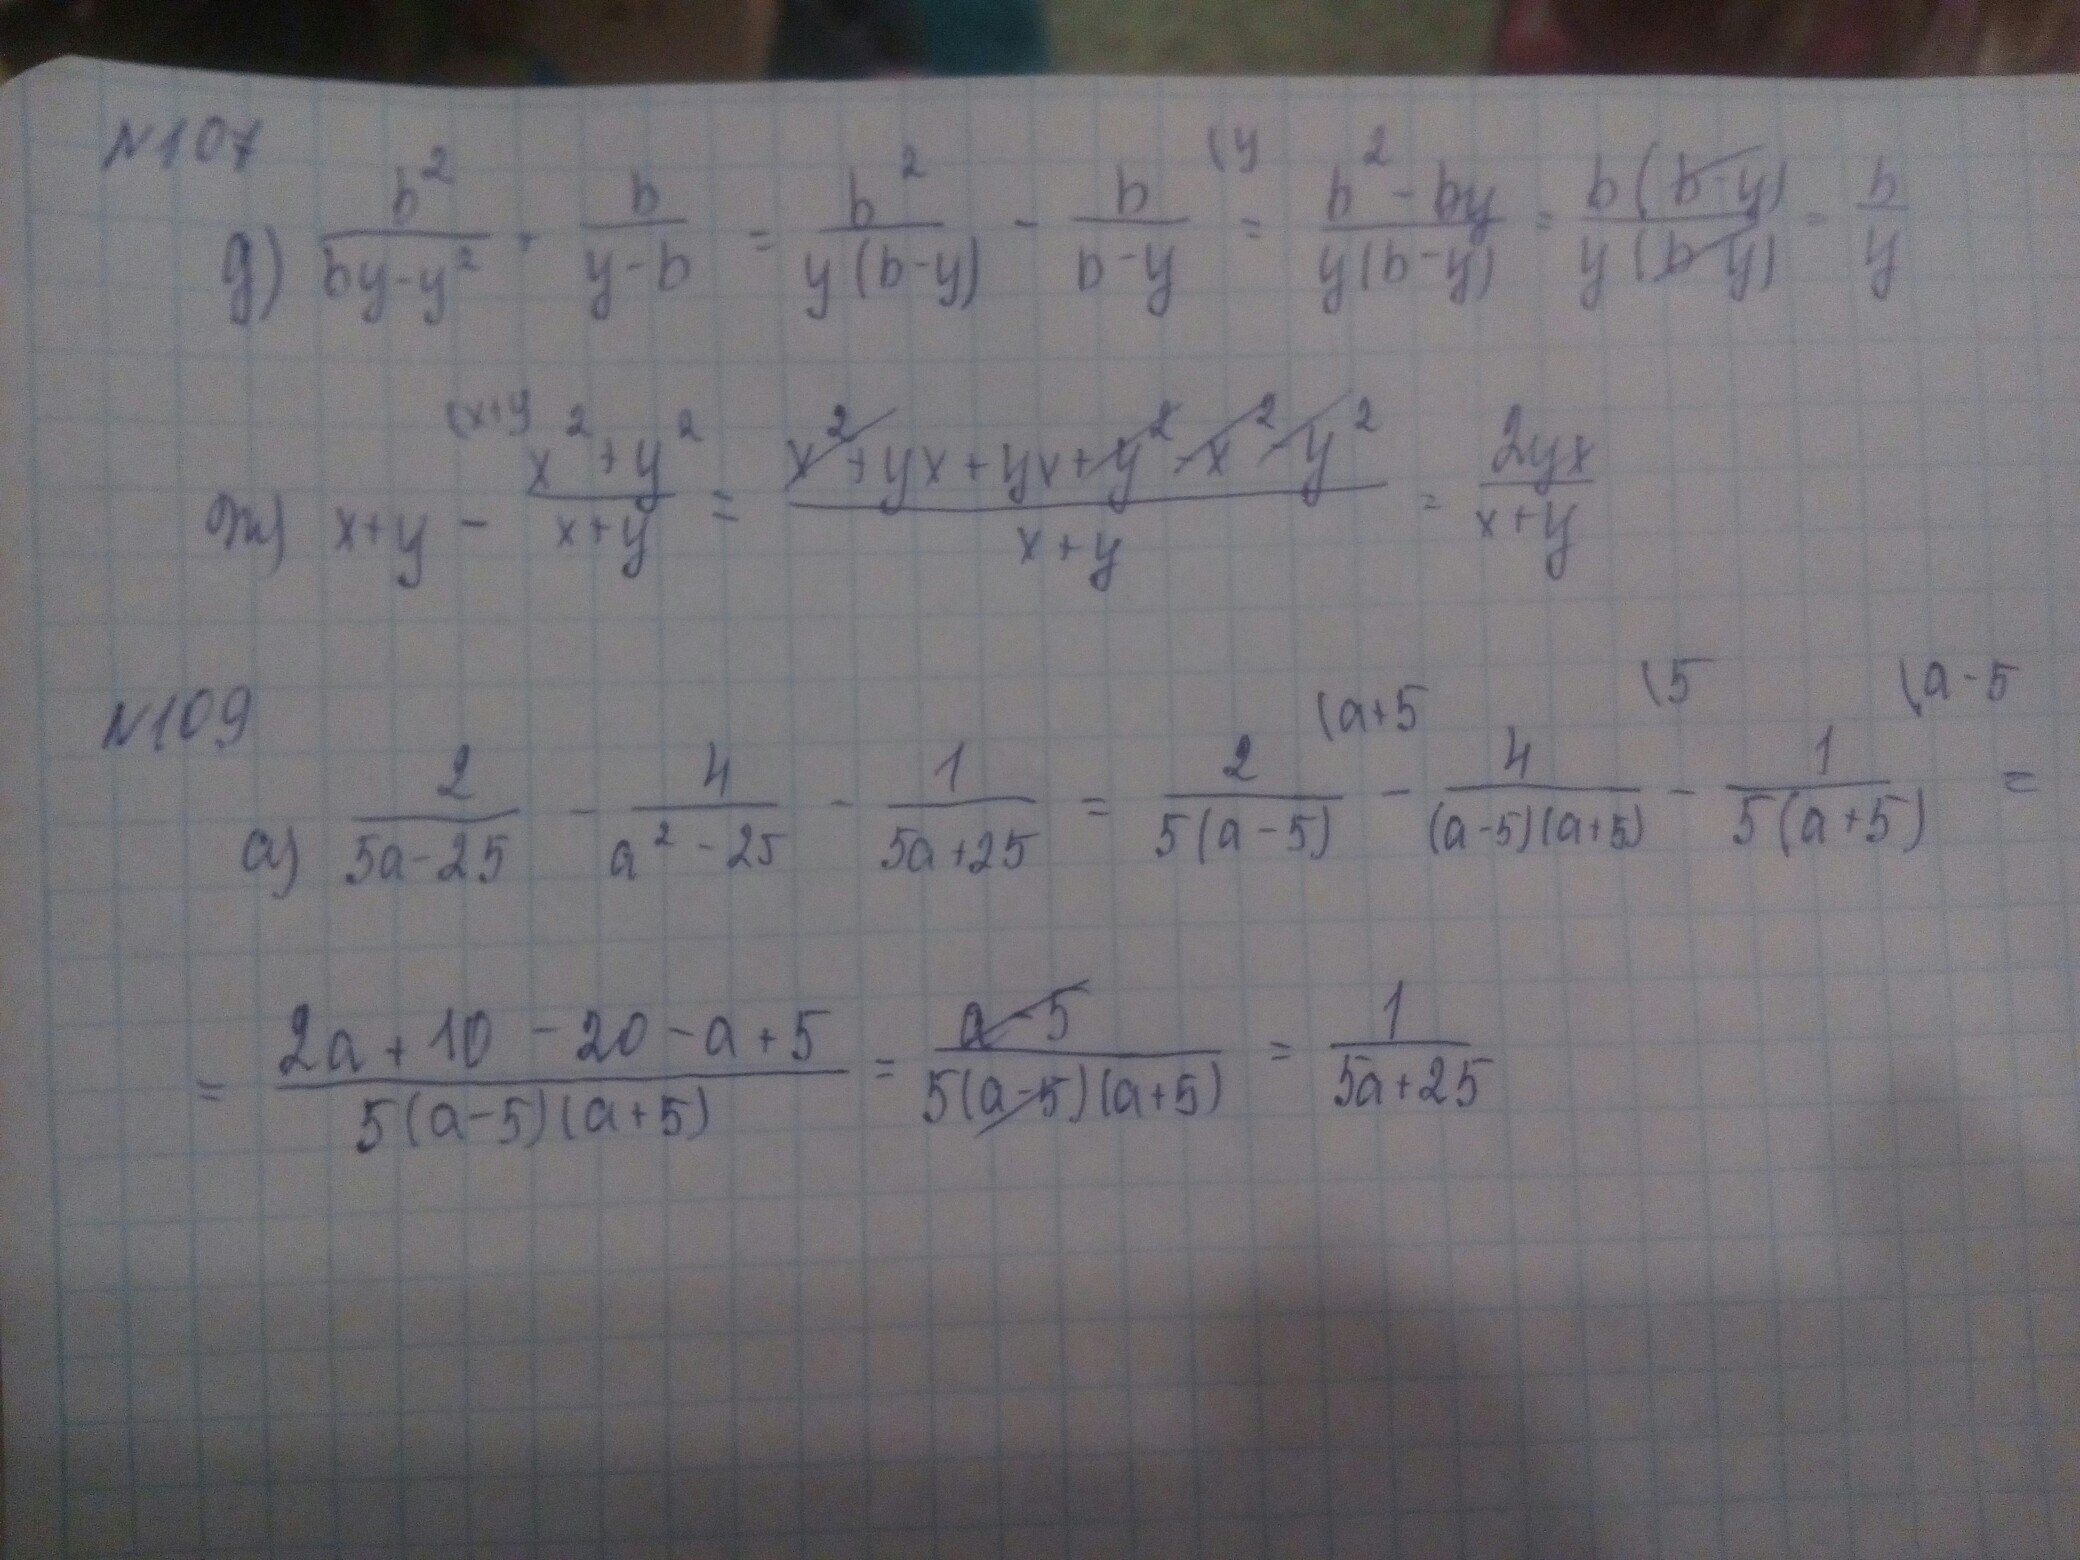 №107
д) b²/(by-y²) + b/(y-b) = b²/(y(b-y)) - b/(b-y) (y = (b²-by)/(y(b-y)) = b(b-y)/(y(b-y)) = b/y
ж) x+y (x+y - (x²+y²)/(x+y) = (x²+yx+yx+y²-x²-y²)/(x+y) = 2yx/(x+y)
№109
а) 2/(5a-25) - 4/(a²-25) - 1/(5a+25) = 2/(5(a-5)) (a+5 - 4/((a-5)(a+5)) (5 - 1/(5(a+5)) (a-5 =
= (2a+10-20-a+5)/(5(a-5)(a+5)) = (a-5)/(5(a-5)(a+5)) = 1/(5a+25)